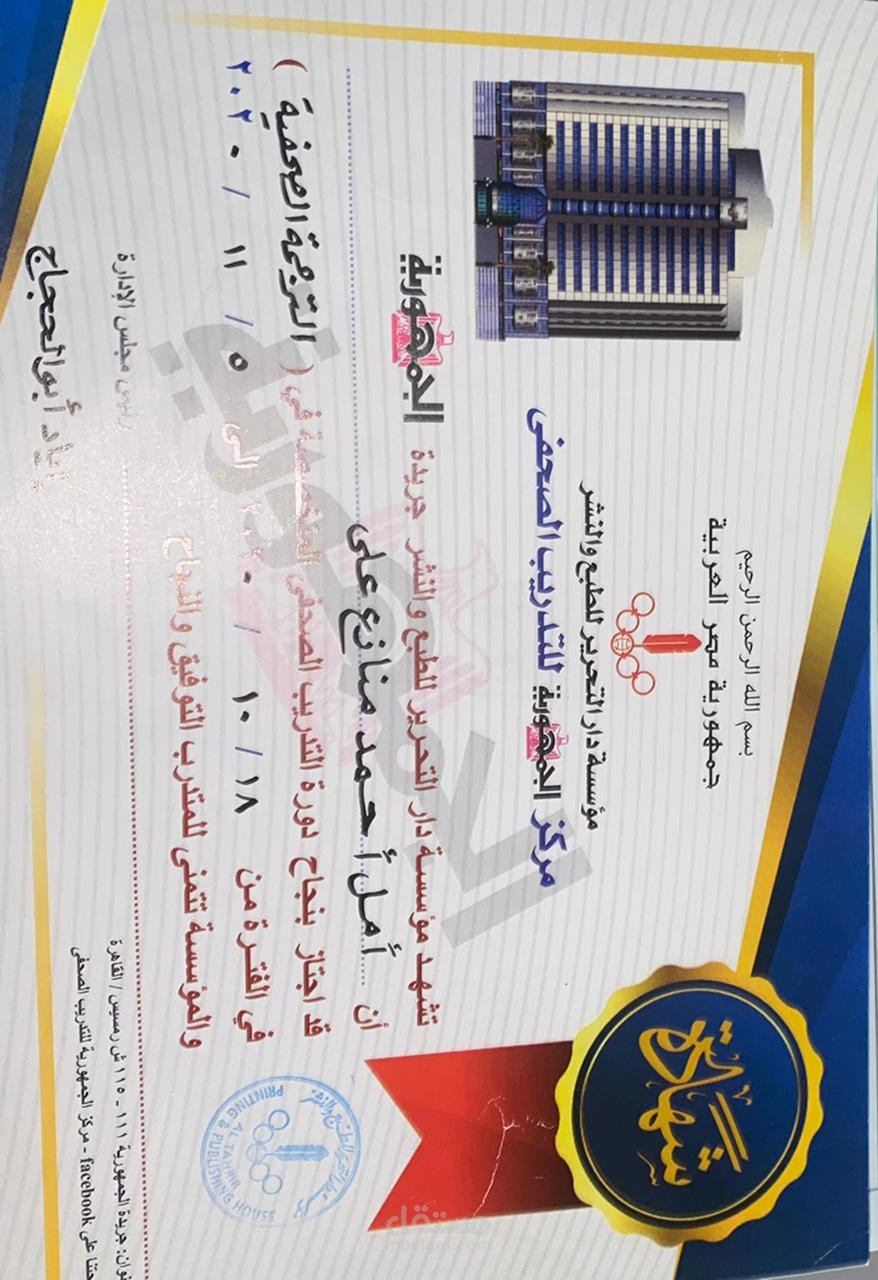 بسم الله الرحمن الرحيم
جمهورية مصر العربية
مؤسسة دار التحرير للطبع والنشر
مركز الجمهورية للتدريب الصحفى
شهادة
تشهد مؤسسة دار التحرير للطبع والنشر جريدة الجمهورية
أن أمل أحمد منازع على
قد اجتاز بنجاح دورة التدريب الصحفى المتخصصة في ( الترجمة الصحفية )
في الفترة من ١٨ / ١٠ / ٢٠٢٠ الى ٥ / ١١ / ٢٠٢٠
والمؤسسة تتمنى للمتدرب التوفيق والنجاح
رئيس مجلس الإدارة
إياد أبو الحجاج
جريدة الجمهورية ١١١ - ١١٥ ش رمسيس / القاهرة
على facebook - مركز الجمهورية للتدريب الصحفى
AL TAHRIR
PRINTING & PUBLISHING HOUSE
الجمهورية
مستقل
mostaql.com